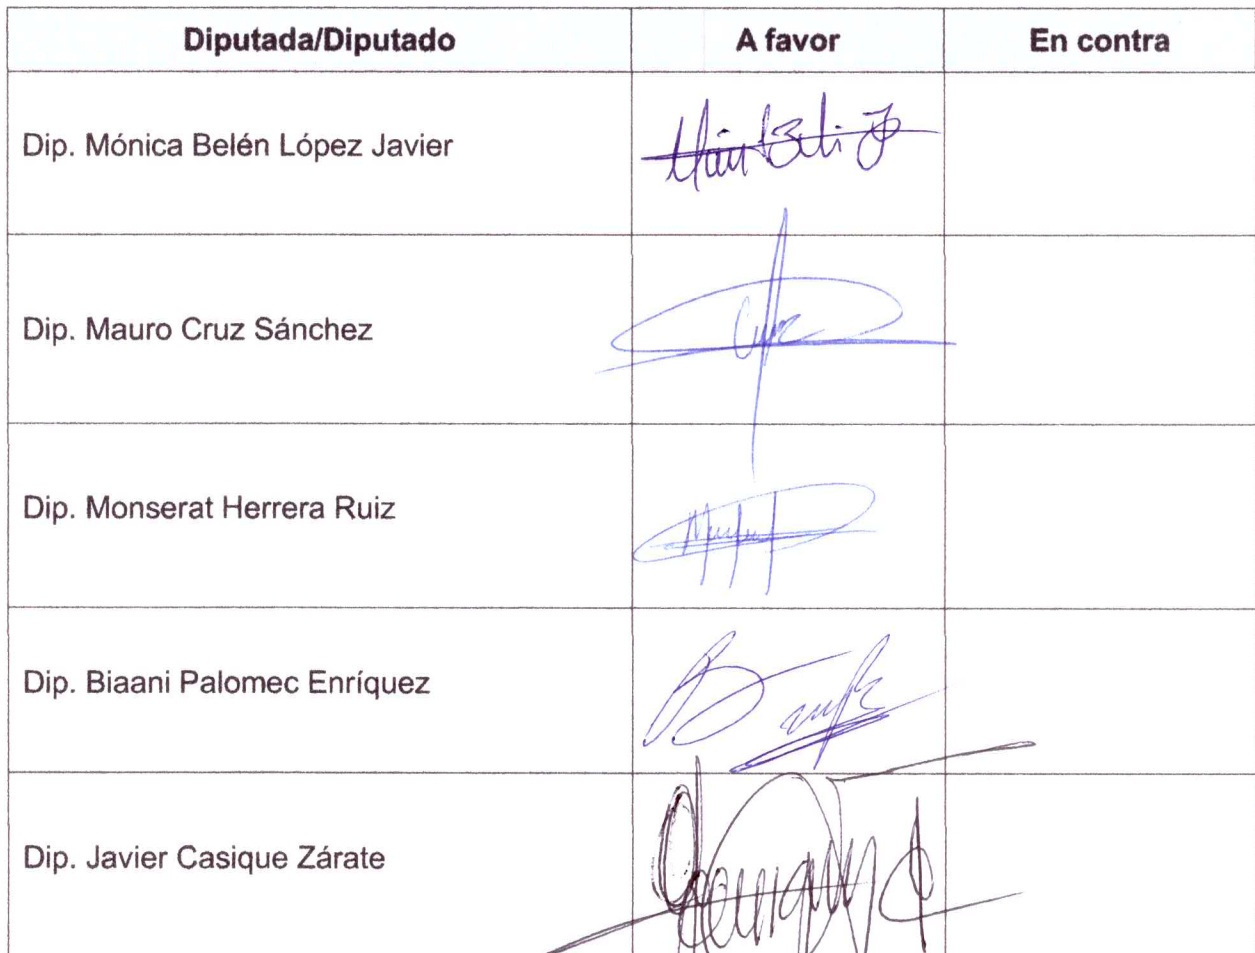 Diputada/Diputado A favor En contra
Dip. Mónica Belén López Javier
Dip. Mauro Cruz Sánchez
Dip. Monserat Herrera Ruiz
Dip. Biaani Palomec Enríquez
Dip. Javier Casique Zárate